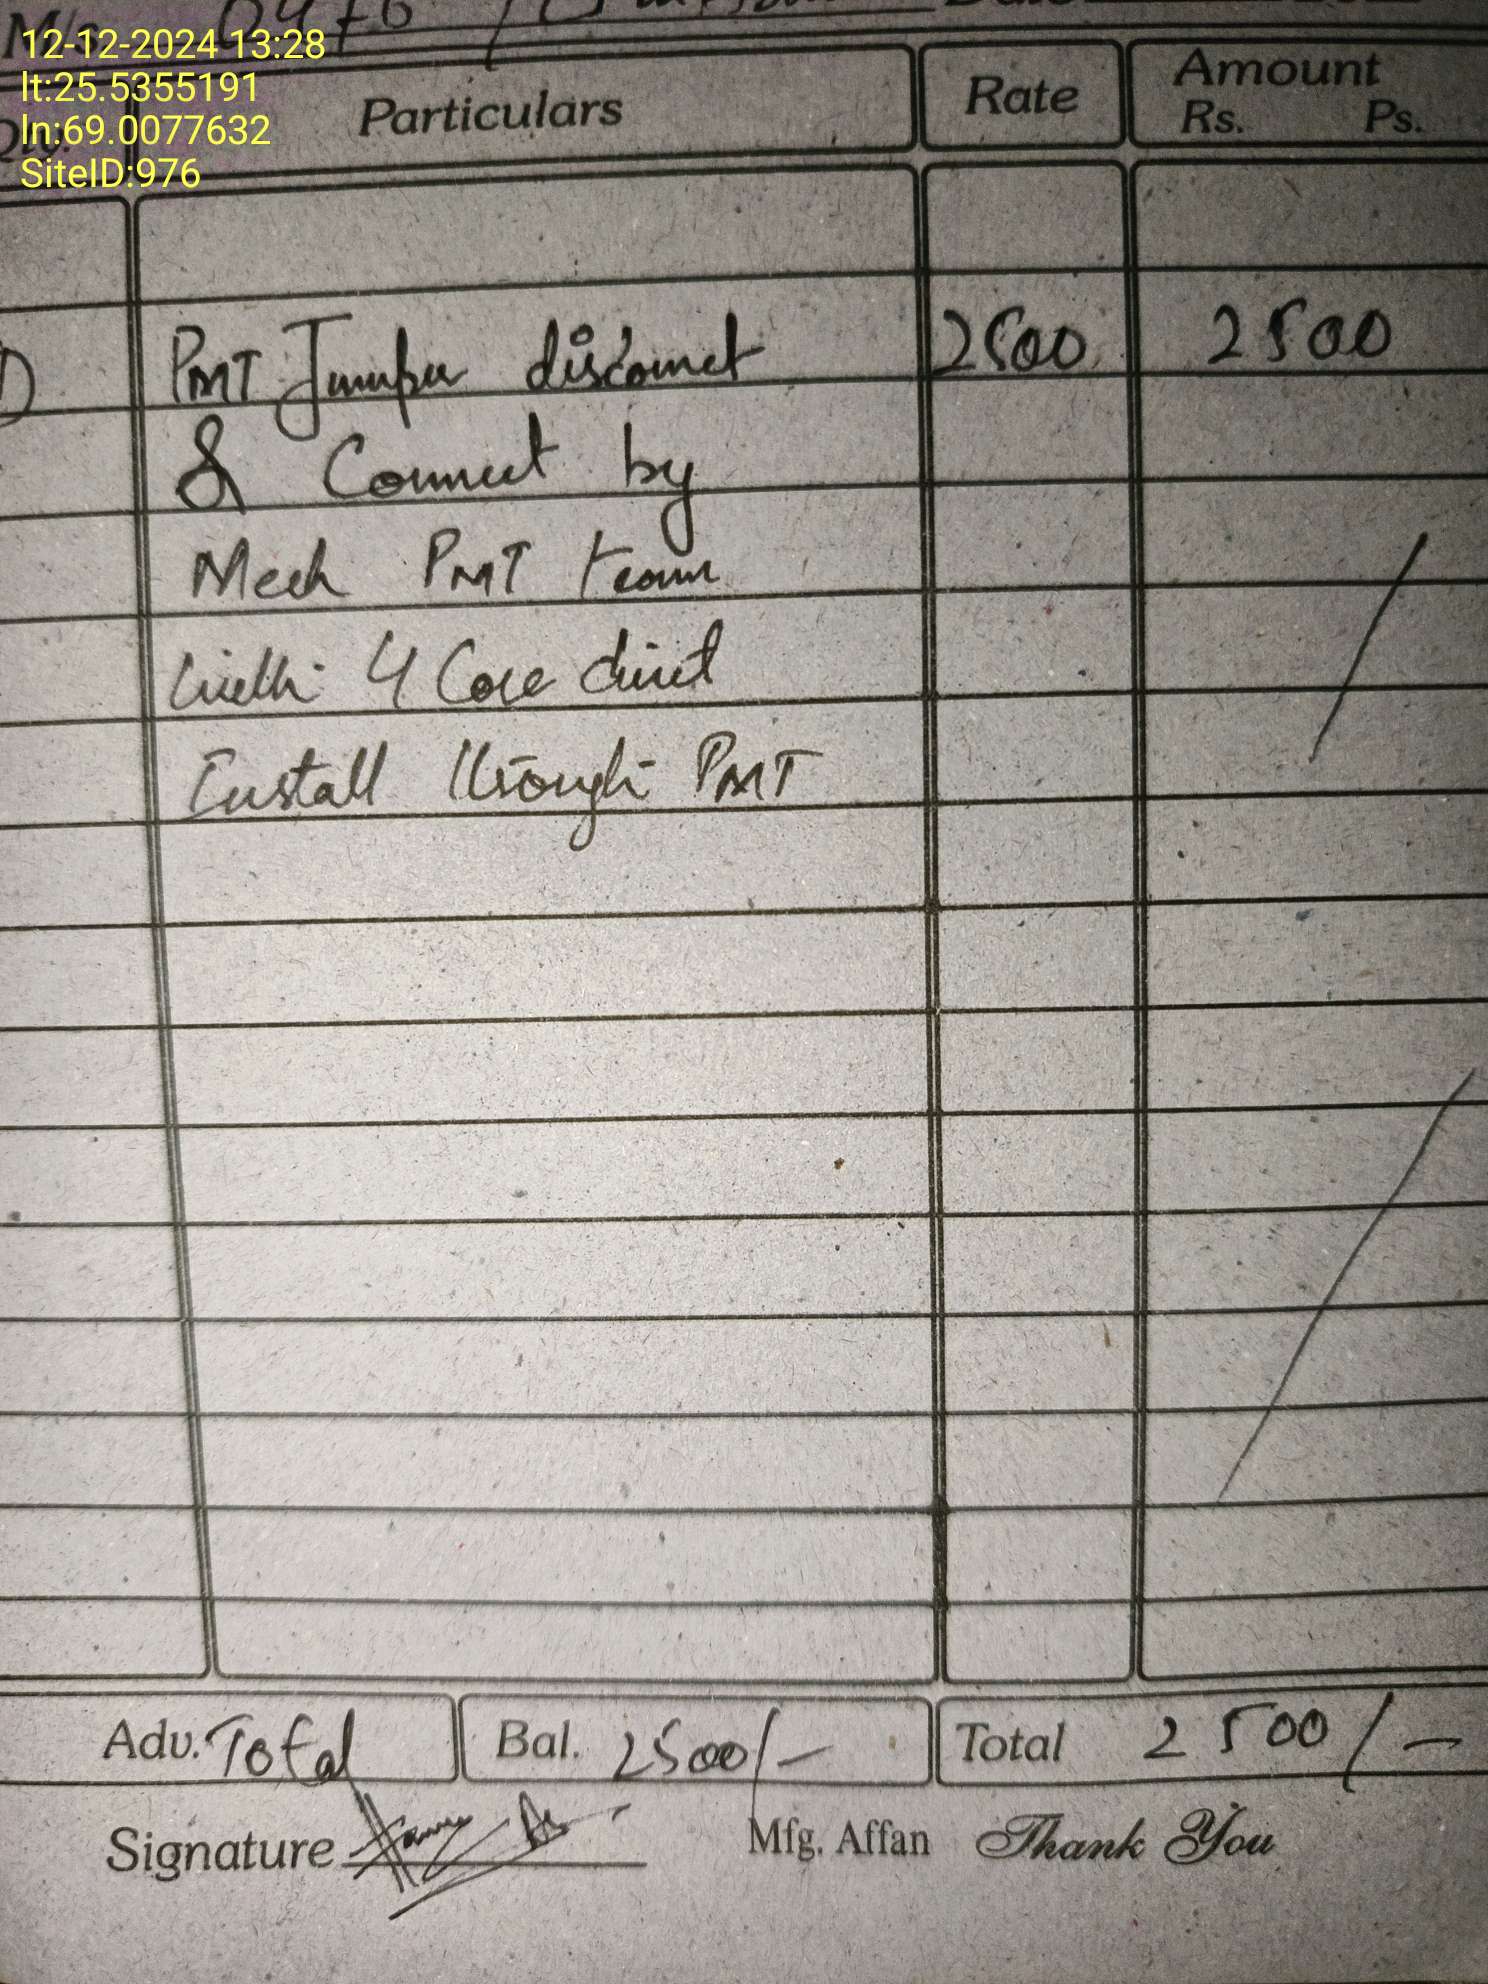 M/s 0976 / Date
12-12-2024 13:28
lt:25.5355191
ln:69.0077632
SiteID:976
Qty. Particulars Rate Amount
Rs. Ps.
1) PMT Jumper disconnect 2500 2500
& Connect by
Mech PMT team
with 4 Core direct
Install through PMT
Adv. Total Bal. 2500/- Total 2500/-
Signature Mfg. Affan Thank You